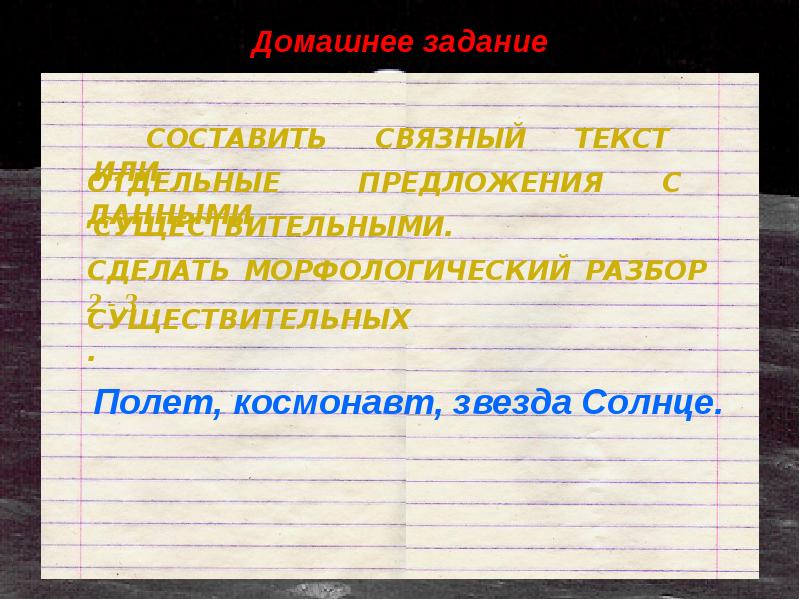 Домашнее задание
СОСТАВИТЬ СВЯЗНЫЙ ТЕКСТ
ИЛИ
ОТДЕЛЬНЫЕ ПРЕДЛОЖЕНИЯ С
ДАННЫМИ
СУЩЕСТВИТЕЛЬНЫМИ.
СДЕЛАТЬ МОРФОЛОГИЧЕСКИЙ РАЗБОР
2 - 3
СУЩЕСТВИТЕЛЬНЫХ
.
Полет, космонавт, звезда Солнце.